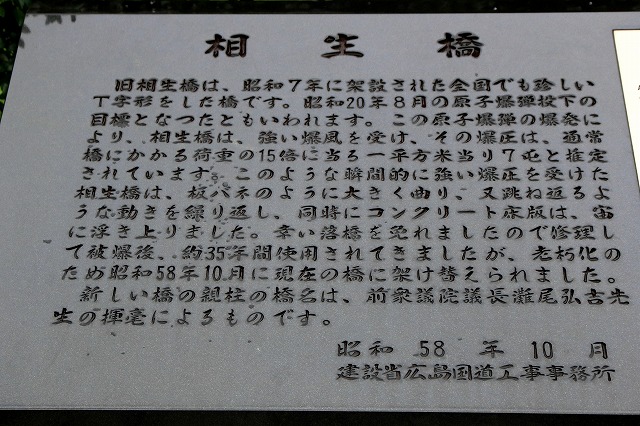 相生橋
旧相生橋は、昭和7年に架設された全国でも珍しい
丁字形をした橋です。昭和20年8月の原子爆弾投下の
目標となつたともいわれます。この原子爆弾の爆発に
より、相生橋は、強い爆風を受け、その爆圧は、通常
橋にかかる荷重の15倍に当る一平方米当り7屯と推定
されています。このような瞬間的に強い爆圧を受けた
相生橋は、板バネのように大きく曲り、又跳ね返るよ
うな動きを繰り返し、同時にコンクリート床版は、宙
に浮き上りました。幸い落橋を免れましたので修理し
て被爆後、約35年間使用されてきましたが、老朽化の
ため昭和58年10月に現在の橋に架け替えられました。
新しい橋の親柱の橋名は、前衆議院議長灘尾弘吉先
生の揮毫によるものです。
昭和58年10月
建設省広島国道工事事務所